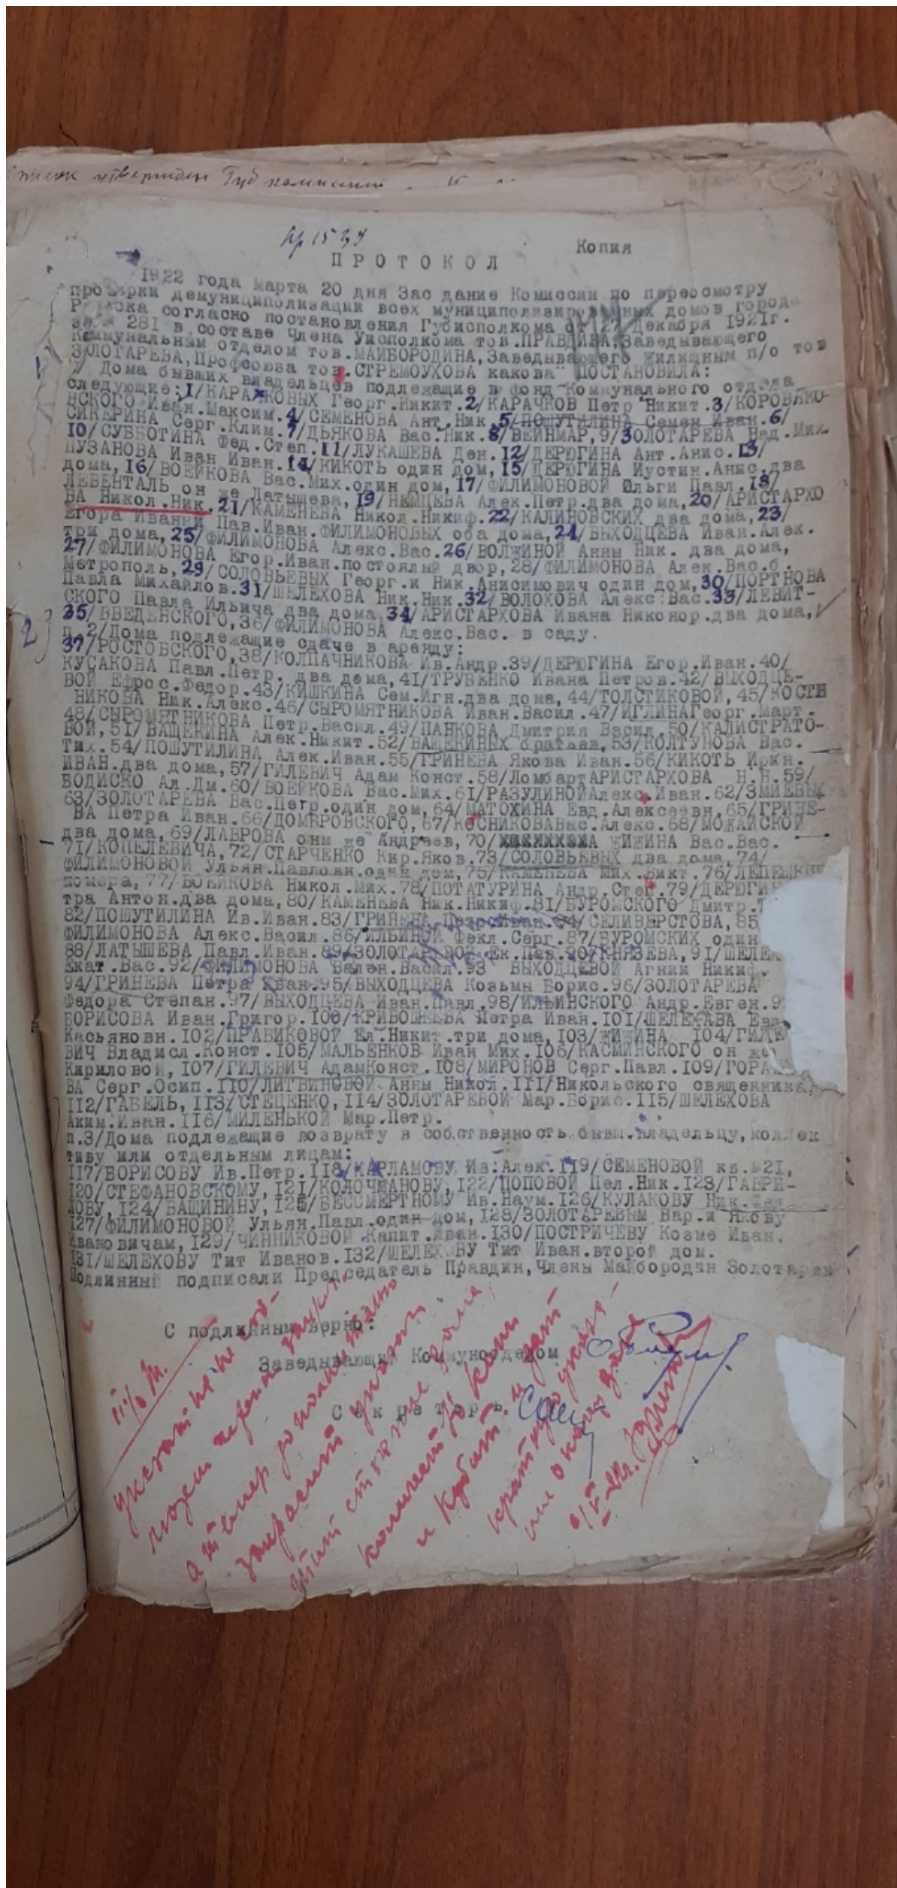 Копия
ПРОТОКОЛ
1922 года Марта 20 дня Заседание Комиссии по пересмотру
проверки демуниципализации всех муниципализированных домов города
согласно постановления Губисполкома от 27 Декабря 1921г.
281 в составе Члена Уисполкома тов.ПРАВДИНА,Заведывающего
Коммунальным отделом тов.МАЙБОРОДИНА,Заведывающего Жилищным п/о тов
ЗОЛОТАРЕВА,Профсоюза тов.СТРЕМОУХОВА какова ПОСТАНОВИЛА:
Дома бывших владельцев подлежащие в фонд Коммунального отдела
следующие:1/КАРАЧКОВЫХ Георг.Никит.2/КАРАЧКОВ Петр Никит.3/КОРОВЯКО-
ВСКОГО Иван.Максим.4/СЕМЕНОВА Ант.Ник.5/ПОШУТИЛИНА Семен Иван.6/
СИКЕРИНА Серг.Клим.7/ДЬЯКОВА Вас.Ник.8/ВЕЙНМАР,9/ЗОЛОТАРЕВА Над.Мих.
10/СУББОТИНА Фед.Степ.11/ЛУКАШЕВА Ден.12/ДЕРЮГИНА Ант.Анис.13/
ПУЗАНОВА Иван Иван.14/КИКОТЬ один дом,15/ДЕРЮГИНА Иустин.Анис.два
дома,16/ВОЕЙКОВА Вас.Мих.один дом,17/ФИЛИМОНОВОЙ Ольги Павл.18/
ЛЕВЕНТАЛЬ он же Латышева,19/НЕМЦЕВА Алек.Петр.два дома,20/АРИСТАРХО
ВА Никол.Ник.21/КАМЕНЕВА Никол.Никиф.22/КАЛИНОВСКИХ два дома,23/
Егора Ивании Пав.Иван.ФИЛИМОНОВЫХ оба дома,24/ВЫХОДЦЕВА Иван.Алек.
три дома,25/ФИЛИМОНОВА Алекс.Вас.26/ВОЛЖИНОЙ Анны Ник. два дома,
27/ФИЛИМОНОВА Егор.Иван.постоялый двор,28/ФИЛИМОНОВА Алек.Вас.б.
Метрополь,29/СОЛОВЬЕВЫХ Георг.и Ник.Анисимович один дом,30/ПОРТНОВА
Павла Михайлов.31/ШЕЛЕХОВА Ник.Ник.32/ВОЛОХОВА Алекс.Вас.33/ЛЕВИТ-
СКОГО Павла Ильича два дома,34/АРИСТАРХОВА Ивана Никонор.два дома,
35/ВВЕДЕНСКОГО,36/ФИЛИМОНОВА Алекс.Вас. в саду.
п.2/Дома подлежащие сдаче в аренду:
37/РОСТОВСКОГО,38/КОЛПАЧНИКОВА Ив.Андр.39/ДЕРЮГИНА Егор.Иван.40/
КУСАКОВА Павл.Петр. два дома,41/ТРУБЕНКО Ивана Петров.42/ВЫХОДЦЕ-
ВОЙ Ефрос.Федор.43/КИШКИНА Сем.Игн.два дома,44/ТОЛСТИКОВОЙ,45/КОСТИ
ВИКОВА Ник.Алекс.46/СЫРОМЯТНИКОВА Иван.Васил.47/ИГЛИНАГеорг.Март.
48/СЫРОМЯТНИКОВА Петр.Васил.49/ПАНКОВА Дмитрия Васил.50/КАЛИСТРАТО-
ВОЙ,51/ВАЩЕКИНА Алек.Никит.52/ВАЩЕКИНЫХ братьев,53/КОЛТУНОВА Вас.
Тих.54/ПОШУТИЛИНА Алек.Иван.55/ГРИНЕВА Якова Иван.56/КИКОТЬ Ирин.
ИВАН.два дома,57/ГИЛЕВИЧ Адам Конст.58/ЛомбартАРИСТАРХОВА Н.Н.59/
БОДИСКО Ал.Дм.60/ВОЕЙКОВА Вас.Мих.61/РАЗУЛИНОЙАлекс.Иван.62/ЗМИЕВЫХ
63/ЗОЛОТАРЕВА Вас.Петр.один дом,64/МАТОХИНА Евд.Алексеевн.65/ГРИНЕ-
ВА Петра Иван.66/ДОМБРОВСКОГО,67/КОСНИКОВАВас.Алекс.68/МОЖАЙСКОЙ
два дома,69/ЛАВРОВА они же Андреев,70/ ЖИЖИНА Вас.Вас.
71/КОПЕЛЕВИЧА,72/СТАРЧЕНКО Кир.Яков.73/СОЛОВЬЕВЫХ два дома,74/
ФИЛИМОНОВОЙ Ульян.Павловн.один дом,75/КАМЕНЕВА Мих.Викт.76/ЛЕПЕШКИН
номера,77/ВОЕЙКОВА Никол.Мих.78/ПОТАТУРИНА Андр.Степ.79/ДЕРЮГИН
тра Антон.два дома,80/КАМЕНЕВА Ник.Никиф.81/БУРОМСКОГО Дмитр.
82/ПОШУТИЛИНА Ив.Иван.83/ГРИНЕВА Петр.Иван.84/СЕЛИВЕРСТОВА,85
ФИЛИМОНОВА Алекс.Васил.86/ИЛЬИНОЙ Фекл.Серг.87/БУРОМСКИХ один
88/ЛАТЫШЕВА Павл.Иван.89/ЗОЛОТАРЕВОЙ Ек.Пав.90/КНЯЗЕВА,91/ШЕЛЕ
Екат.Вас.92/ФИЛИМОНОВА Вален.Васил.93 ВЫХОДЦЕВОЙ Агнии Никиф.
94/ГРИНЕВА Петра Иван.95/ВЫХОДЦЕВА Козьмы Борис.96/ЗОЛОТАРЕВА
Федора Степан.97/ВЫХОДЦЕВА Иван.Павл.98/ИЛЬИНСКОГО Андр.Евген.9
БОРИСОВА Иван.Григор.100/КРИВОШЕЕВА Петра Иван.101/ШЕЛЕХАВА Евд
Касьяновн.102/ПРАБИКОВОЙ Ел.Никит.три дома,103/ЖИЖИНА 104/ГИЛЕ
ВИЧ Владисл.Конст.105/МАЛЬЕНКОВ Иван Мих.106/КАСМИНСКОГО он же
Кириловой,107/ГИЛЕВИЧ АдамКонст.108/МИРОНОВ Серг.Павл.109/ГОРА
ВА Серг.Осип.110/ЛИТВИНОВОЙ Анны Никол.111/Никольского священника,
112/ГАБЕЛЬ,113/СТЕЦЕНКО,114/ЗОЛОТАРЕВОЙ Мар.Борис.115/ШЕЛЕХОВА
Аким.Иван.116/МИЛЕНЬКОЙ Мар.Петр.
п.3/Дома подлежащие возврату в собственность бывш.владельцу,коллек
тиву или отдельным лицам:
117/БОРИСОВУ Ив.Петр.118/ХАРЛАМОВУ Ив.Алек.119/СЕМЕНОВОЙ кв.№21,
120/СТЕФАНОВСКОМУ,121/КОЛОЧМАНОВУ,122/ПОПОВОЙ Пел.Ник.123/ГАВРИ-
ЛОВУ,124/ВАЩИНИНУ,125/БЕССМЕРТНОМУ Ив.Наум.126/КУЛАКОВУ Ник.Фед.
127/ФИЛИМОНОВОЙ Ульян.Павл.один дом,128/ЗОЛОТАРЕВЫМ Вар.и Якову
Ивановичам,129/ЧИННИКОВОЙ Капит.Иван.130/ПОСТРИЧЕВУ Козме Иван.
131/ШЕЛЕХОВУ Тит Иванов.132/ШЕЛЕХОВУ Тит Иван.второй дом.
Подлинный подписали Председатель Правдин,Члены Майбородин Золотарев
С подлинным верно:
Заведывающий Коммуноотделом
Секретарь